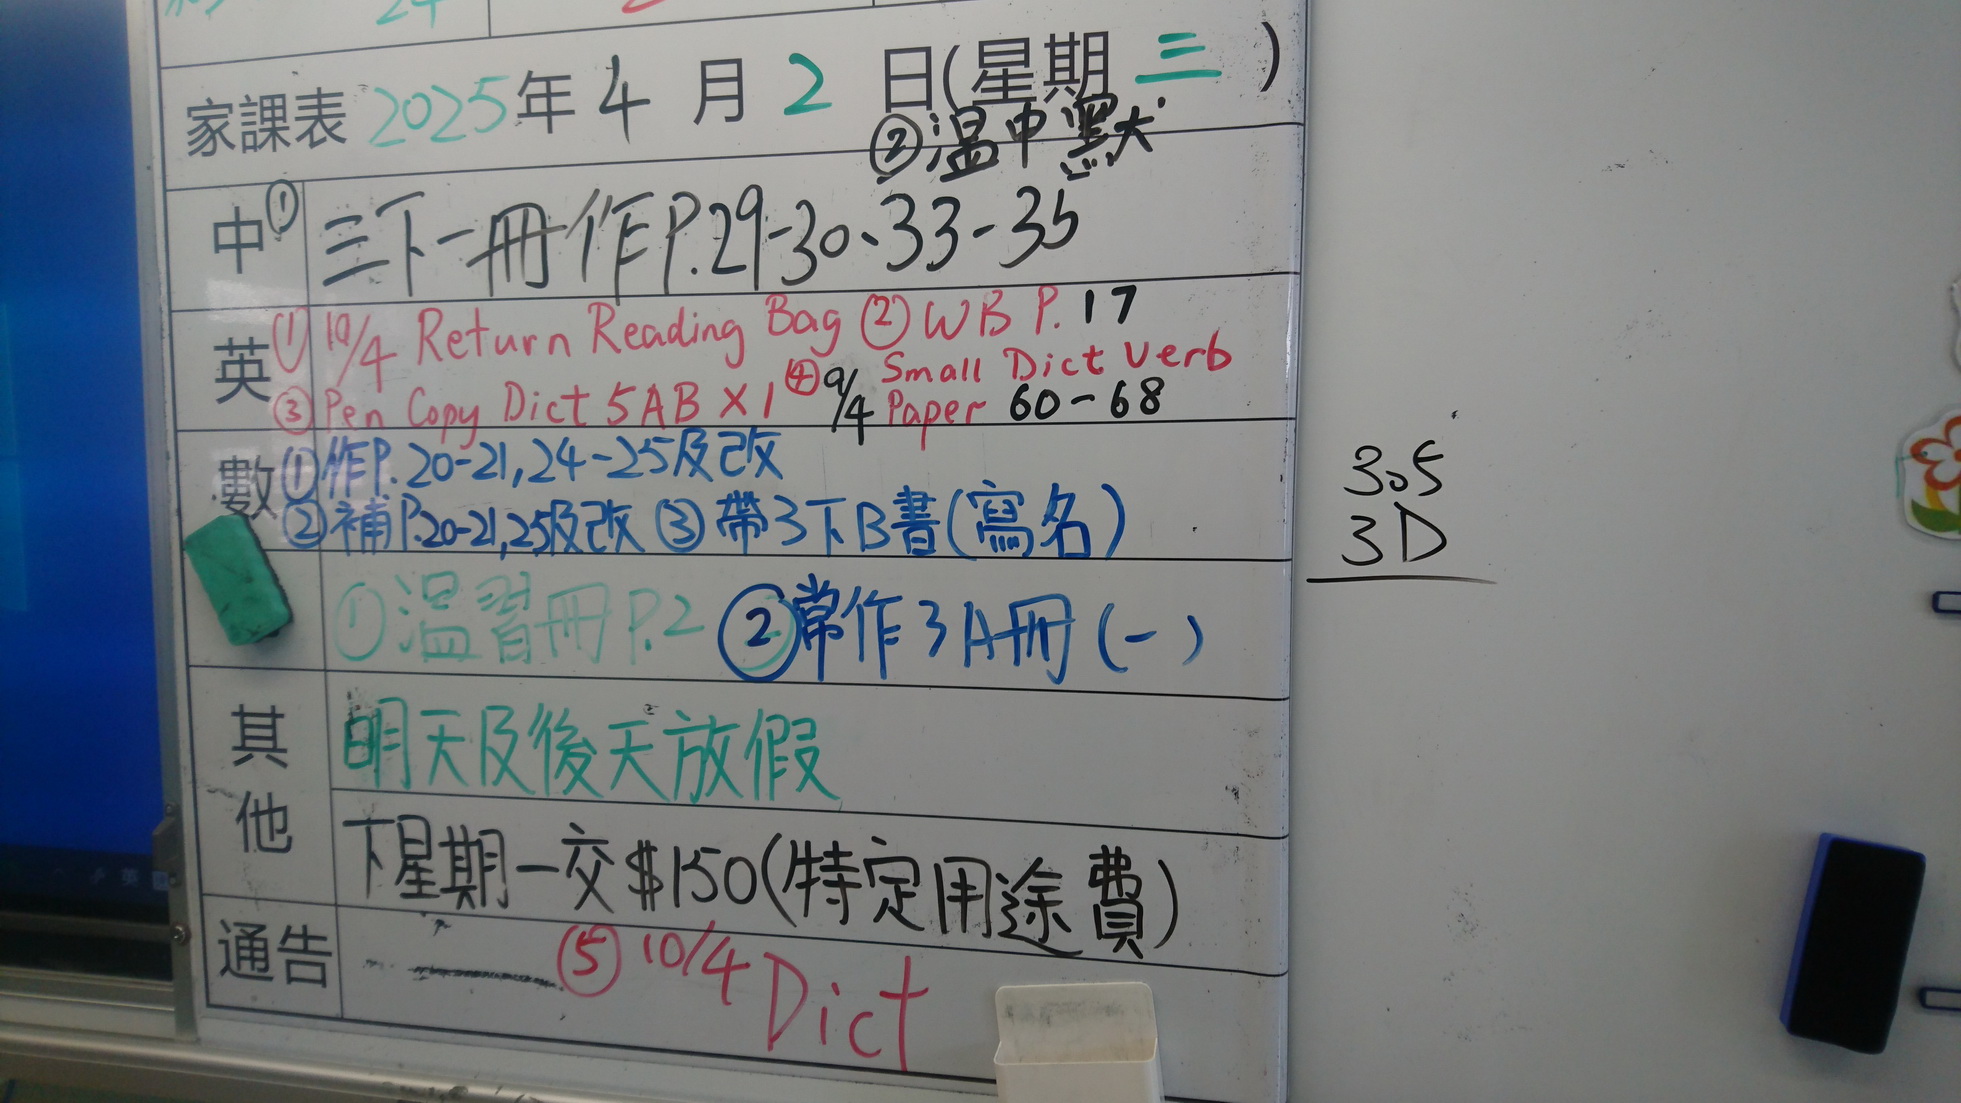 24
家課表 2025年 4 月 2 日(星期 三 )
②溫中默
中 ① 三下一冊作P.29-30、33-35
英 ① 10/4 Return Reading Bag ② WB P. 17
③ Pen Copy Dict 5AB X 1 ④ 9/4 Small Dict Verb
Paper 60-68
數 ① 作P. 20-21, 24-25及改
② 補P.20-21, 25及改 ③ 帶3下B書(寫名)
① 溫習冊P.2 ② 常作3A冊(一)
其他 明天及後天放假
下星期一交$150(特定用途費)
通告 ⑤ 10/4 Dict
305
3D